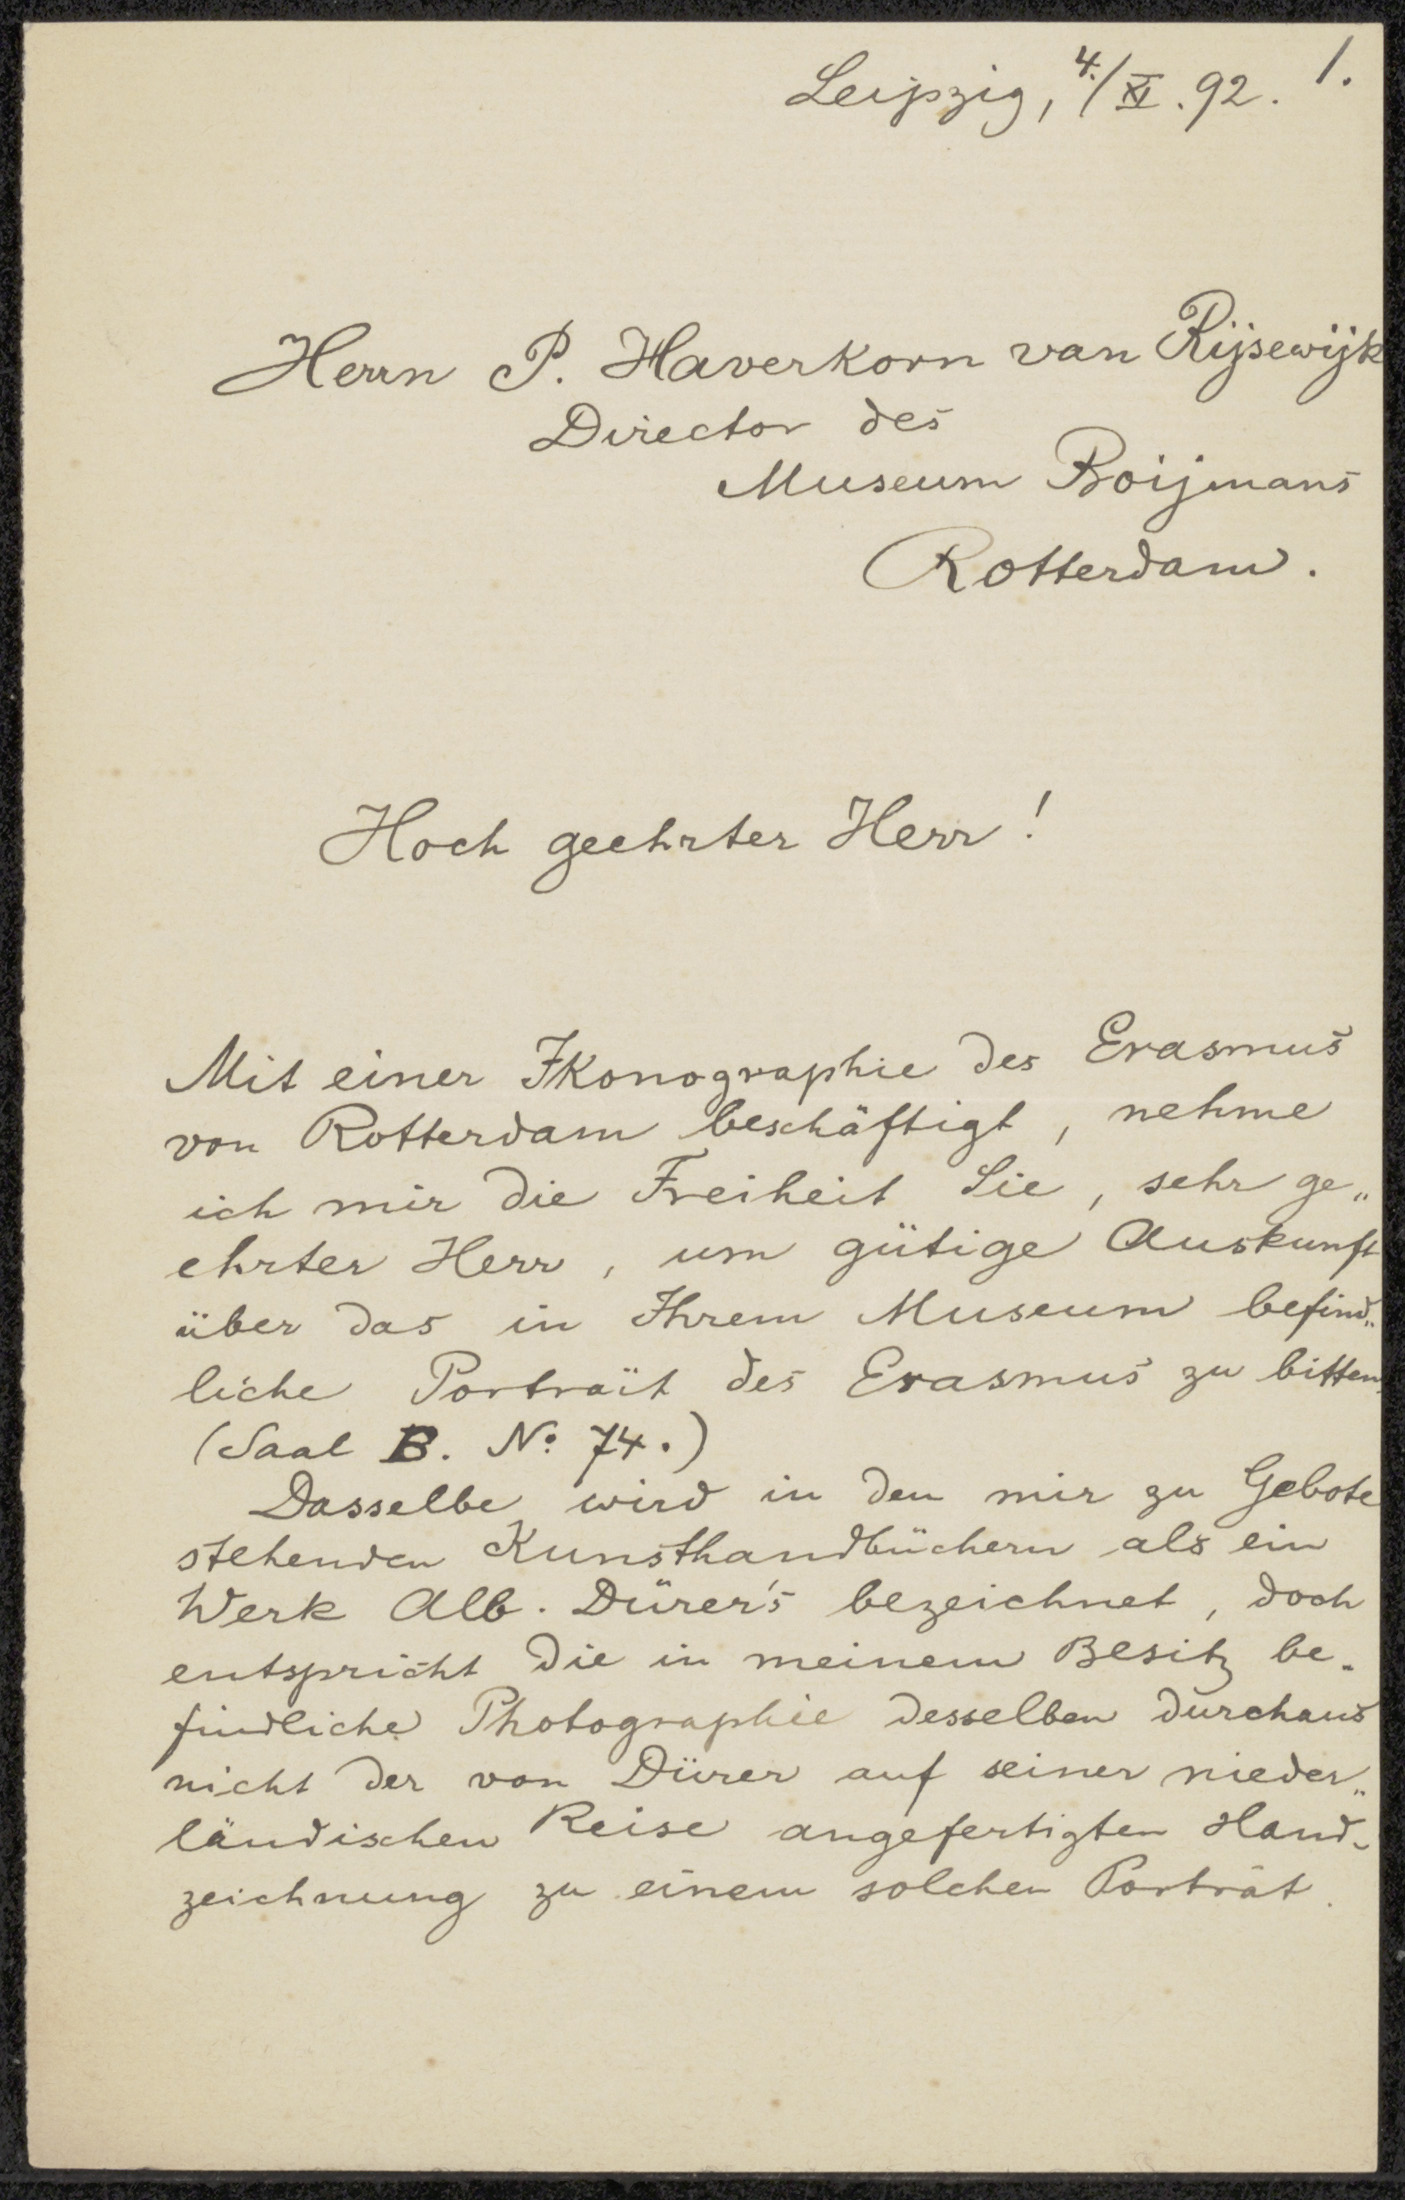 Leipzig, 4./XI. 92. 1.
Herrn P. Haverkorn van Rijsewijk
Director des
Museum Boijmans
Rotterdam.
Hoch geehrter Herr!
Mit einer Ikonographie des Erasmus
von Rotterdam beschäftigt, nehme
ich mir die Freiheit Sie, sehr ge„
ehrter Herr, um gütige Auskunft
über das in Ihrem Museum befind„
liche Porträit des Erasmus zu bitten.
(Saal B. No. 74.)
Dasselbe wird in den mir zu Gebote
stehenden Kunsthandbüchern als ein
Werk Alb. Dürer's bezeichnet, doch
entspricht die in meinem Besitz be-
findliche Photographie desselben durchaus
nicht der von Dürer auf seiner nieder„
ländischen Reise angefertigten Hand-
zeichnung zu einem solchen Porträt.